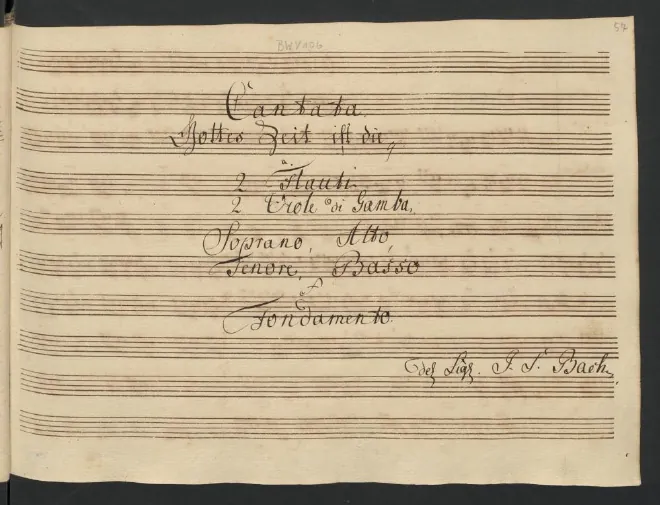 57
BWV 106
Cantata.
Gottes Zeit ist die
à.
2 Flauti.
2 Viole di Gamba.
Soprano, Alto,
Tenore, Basso
Fondamento.
del Sigr. J. S. Bach.